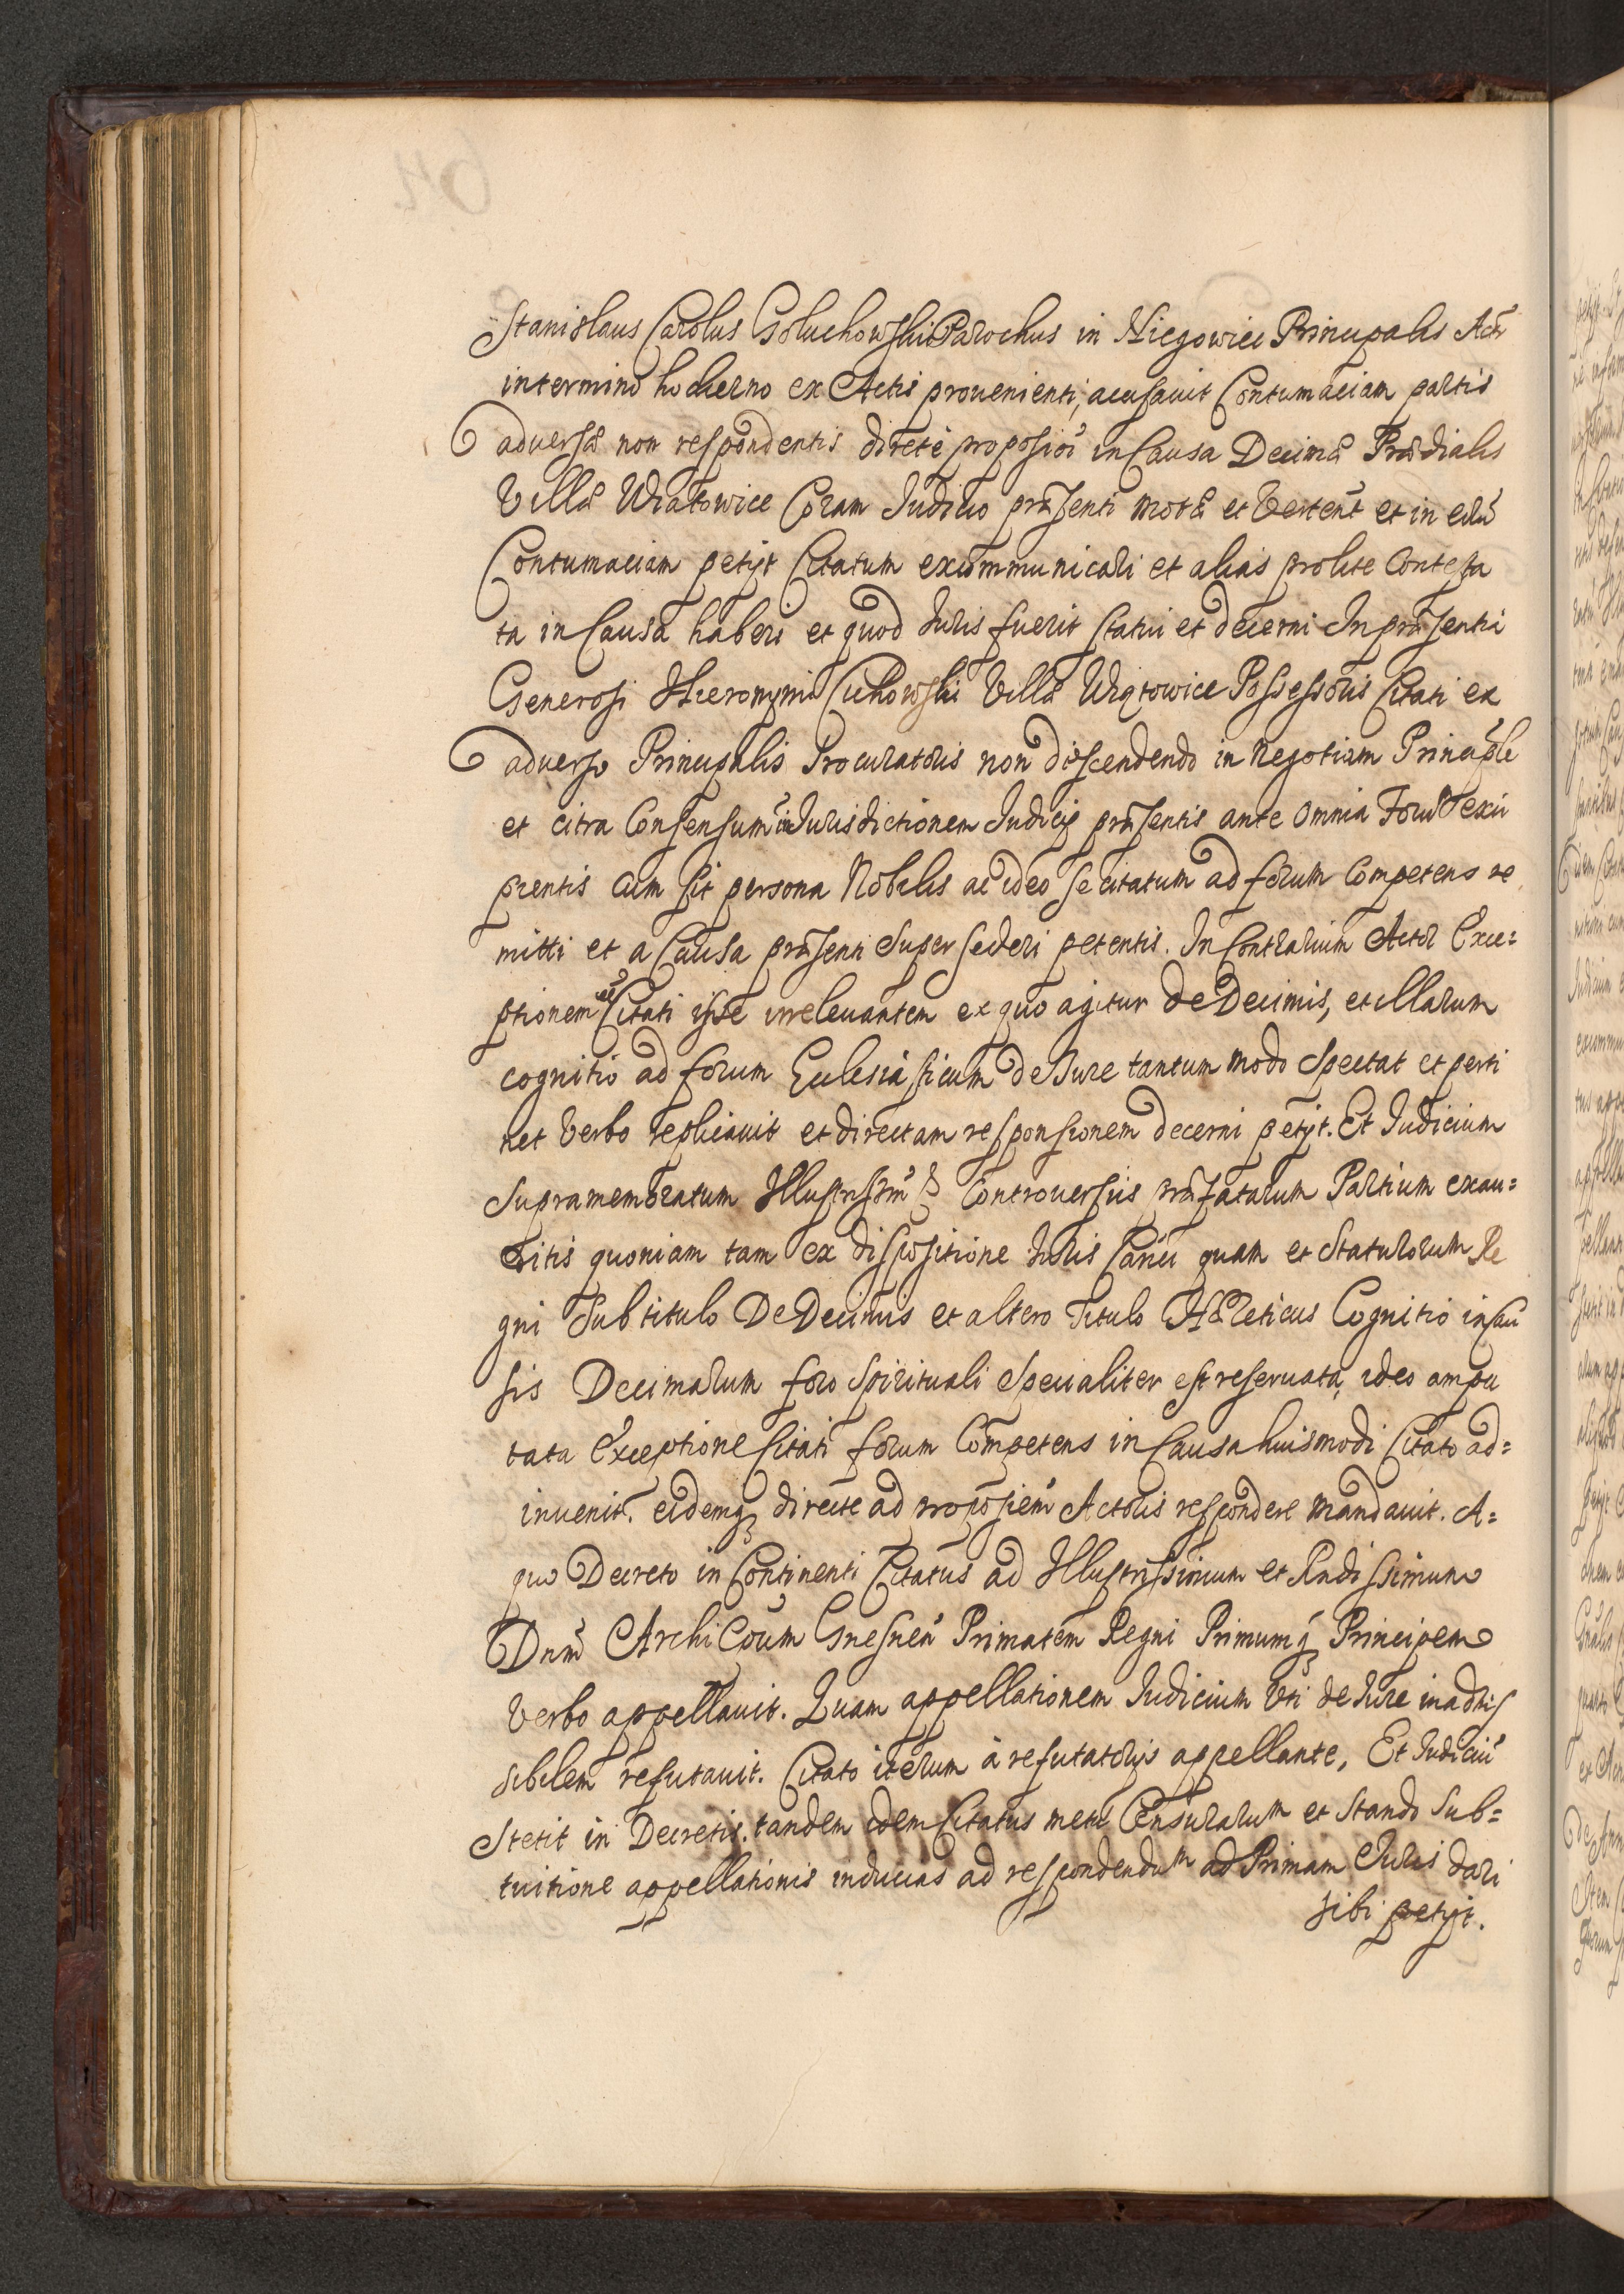 Stanislaus Carolus Goluchowski Parochus in Niegowice Principalis Actr
intermino hodierno ex Actis prouenienti, accusauit Contumaciam partis
aduersæ non respondentis directè proposioi in Causa Decimæ Prædialis
Villæ Wiatowice Coram Judicio prãsenti motæ et Verteñt et in eiũ
Contumaciam petijt Citatum excommunicari et alias prolite Contesta
ta in Causa haberi et quod Iuris fuerit statui et decerni In prãsentia
Generosi Hieronymi Cichowski Villæ Wiątowice Possessoris Citati ex
aduerso Principalis Procuratoris non discendendo in negotium Principāle
et citra Consensum in Iurisdictionem Judicij prãsentis ante omnia Forũ exci
pientis cum sit persona Nobilis ac ideo se citatum ad forum Competens re
mitti et a Causa prãsenti Supersederi petentis. In Contrarium Actor Exce=
ptionem Citati esse irreleuantem ex quo agitur de Decimis, et illarum
cognitio ad forum Eclesiasticum de Iure tantum modo Spectat et perti
net Verbo replicauit et directam responsionem decerni petijt. Et Iudicium
Supramemoratum Illustrissm̃ Controuersijs prãfatarum Partium exau=
ditis quoniam tam ex dispositione Iuris Canci quam et Statutorum Re
gni Sub titulo De Decimis et altero Titulo Hæreticus Cognitio in Cau
sis Decimarum foro Spirituali Specialiter est reseruata, ideo ampu
tata Exceptione Citati forum Competens in Causa huismodi Citato ad=
inuenit. eidemq directe ad proposiem̃ Actoris respondere mandauit. A=
quo Decreto in Continenti Citatus ad Illustrissimum et Rndissimum
Dnm̃ ArchiEp̃um Gnesneñ Primatem Regni Primumq Principem
Verbo appellauit. Quam appellationem Iudicium Vti de Iure inadmis
sibilem refutauit. Citato iterum à refutatorijs appellante, Et Iudiciũ
Stetit in Decretis. tandem idem Citatus metu Censurarum et Stando Sub=
tuitione appellationis inducias ad respondendum ad Primam Iuris dari
sibi petijt.